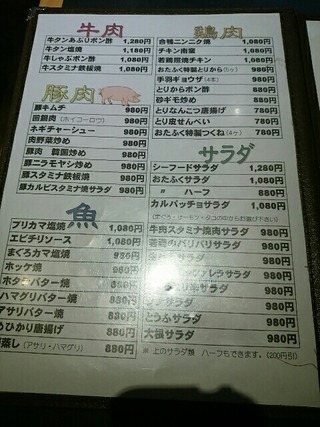 牛肉
牛タンあぶりポン酢 1,280円
牛タン塩焼 1,180円
牛しゃぶポン酢 1,080円
牛スタミナ鉄板焼 1,080円
豚肉
豚キムチ 980円
回鍋肉(ホイコーロウ) 980円
ネギチャーシュー 980円
肉野菜炒め 980円
豚肉 韓国炒め 980円
豚ニラモヤシ炒め 980円
豚スタミナ鉄板焼 980円
豚カルビスタミナ焼サラダ 980円
魚
ブリカマ塩焼 1,080円
エビチリソース 1,080円
まぐろカマ塩焼 980円
ホッケ焼 980円
ホタテバター焼 980円
ハマグリバター焼 980円
アサリバター焼 880円
ひかり唐揚げ 880円
蒸し(アサリ・ハマグリ) 880円
鶏肉
合鴨ニンニク焼 1,080円
チキン南蛮 1,080円
若鶏照焼チキン 1,080円
おたふく特製とりから(5ヶ) 980円
手羽ギョウザ(4本) 980円
とりからポン酢 880円
砂ギモ炒め 880円
とりなんこつ唐揚げ 780円
とり皮せんべい 780円
おたふく特製つくね(4ヶ) 780円
サラダ
シーフードサラダ 1,280円
おたふくサラダ 1,080円
〃 ハーフ 880円
カルパッチョサラダ 1,080円
(まぐろ・サーモン・タコの中からお選び下さい)
牛肉スタミナ焼肉サラダ 980円
若鶏のパリパリサラダ 980円
サラダ 980円
サラダ 980円
サラダ 980円
サラダ 980円
とうふサラダ 980円
大根サラダ 980円
※ 上のサラダ類 ハーフもできます。(200円引)